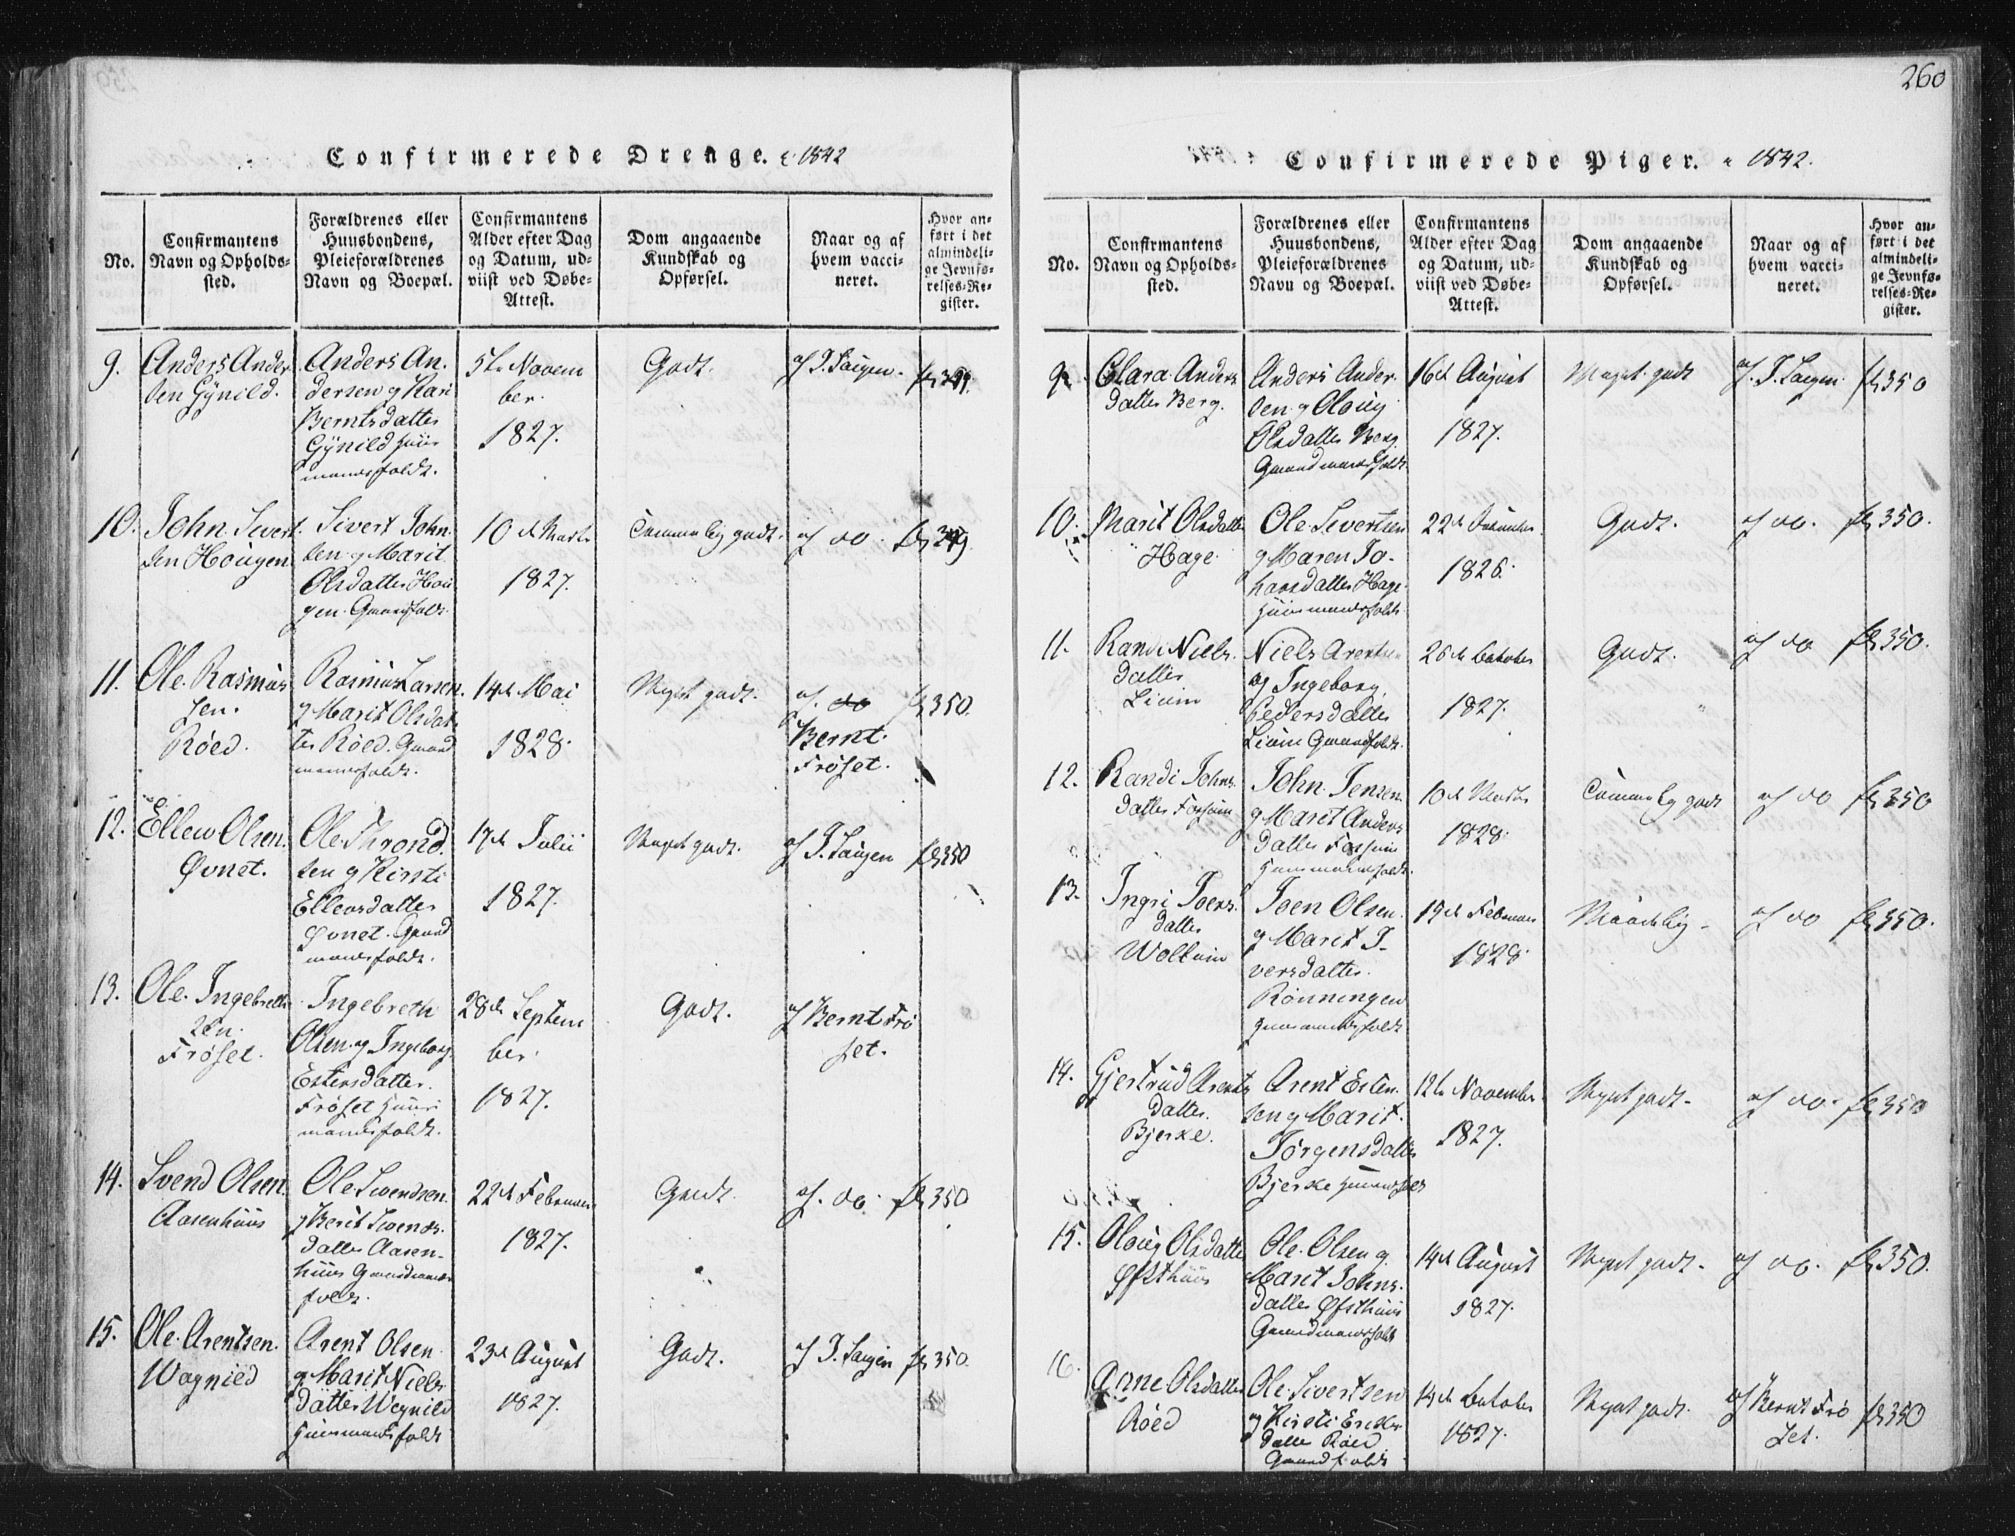 260
Confirmerede Drenge. 1842
No.
Confirmantens
Navn og Opholds-
sted.
Forældrenes eller
Huusbondens,
Pleieforældrenes
Navn og Boepæl.
Confirmantens
Alder efter Dag
og Datum, ud-
viist ved Døbe-
Attest.
Dom angaaende
Kundskab og
Opførsel.
Naar og af
hvem vacci-
neret.
Hvor an-
ført i det
almindeli-
ge Jevnfø-
relses-Re-
gister.
9.
Anders Ander
sen Gÿnild.
Anders An.
dersen og Kari
Berntsdatter
Gÿnild Huus
mandsfolk.
5te Novem
ber.
1827.
Godt.
af I. Saugen.
10.
John Sivert.
sen Hougen
Sivert John.
sen og Marit
Olsdatter Hou
gen. Gaardfolk.
10d Marts
1827.
Temmelig godt.
af do.
11.
Ole Rasmus
sen.
Røed.
Rasmus Larsen.
og Marit Olsdat
ter Røed. Gaard
mandsfolk.
14d Mai
1828.
Meget godt.
af do
Bernt
Frøset.
350.
12.
Ellew Olsen.
Øvnet.
Ole Thrond.
sen og Kirsti
Ellewsdatter
Øvnet. Gaard
mandsfolk.
17d Julii
1827.
Meget godt.
af I. Saugen
350
13.
Ole Ingebreth
sen.
Frøset.
Ingebreth
Olsen og Ingeborg
Estensdatter.
Frøset Huus
mandsfolk.
28d Septem
ber.
1827.
Godt.
af Bernt Frø
set.
14.
Svend Olsen.
Aasenhuus
Ole Svendsen.
og Berit Svends.
datter Aasen-
huus Gaardmands
folk.
22d Februar
1827.
Godt.
af do.
350
15.
Ole Arentsen.
Wognild
Arent Olsen
og Marit Niels
datter Wognild
Huusmandsfolk
23d August
1827.
Godt.
af I. Saugen
350.
Confirmerede Piger. 1842.
No.
Confirmantens
Navn og Opholds-
sted.
Forældrenes eller
Huusbondens,
Pleieforældrenes
Navn og Boepæl.
Confirmantens
Alder efter Dag
og Datum, ud-
viist ved Døbe-
Attest.
Dom angaaende
Kundskab og
Opførsel.
Naar og af
hvem vacci-
neret.
Hvor an-
ført i det
almindeli-
ge Jevnfø-
relses-Re-
gister.
9.
Clara Anders
datter Berg.
Anders Ander.
sen og Oloug
Olsdatter Berg.
Gaardmandsfolk
16d August
1827.
Meget godt
af I. Saugen.
350
10.
Marit Olsdatter
Hage
Ole Sivertsen
og Maren Jo-
hansdatter Hage.
Huusmandsfolk.
22d
1826.
Godt.
af do.
350.
11.
Randi Niels.
datter
Liium
Niels Arentsen
og Ingeborg
Pedersdatter
Liium Gaardfolk.
26d October
1827.
Godt.
af do
350.
12.
Randi Johns.
datter Fossum
John Jensen.
og Marit Anders
datter Fossum
Huusmandsfolk.
10d Marts
1828.
Temmelig godt
af do
350
13.
Ingri Joens.
datter
Wollum
Joen Olsen.
og Marit I-
versdatter.
Rønningen
Huusmandsfolk
19d Februar
1828.
Maadelig.
af do
350.
14.
Gjertrud Arents
datter.
Bjerke.
Arent Esten.
sen og Marit.
Jørgensdatter
Bjerke Huusmandsfolk
12te November
1827.
Meget godt.
af do.
350
15.
Oloug Olsdatter
Østhuus
Ole Olsen og
Marit Johns.
datter Østhuus
Gaardmandsfolk
14d August
1827.
Meget godt.
af do.
350.
16.
Anne Olsdatter
Røed
Ole Sivertsen
og Kirsti Ericks
datter Røed
Gaardfolk
14d October
1827.
Meget godt.
af Bernt Frø
set.
350